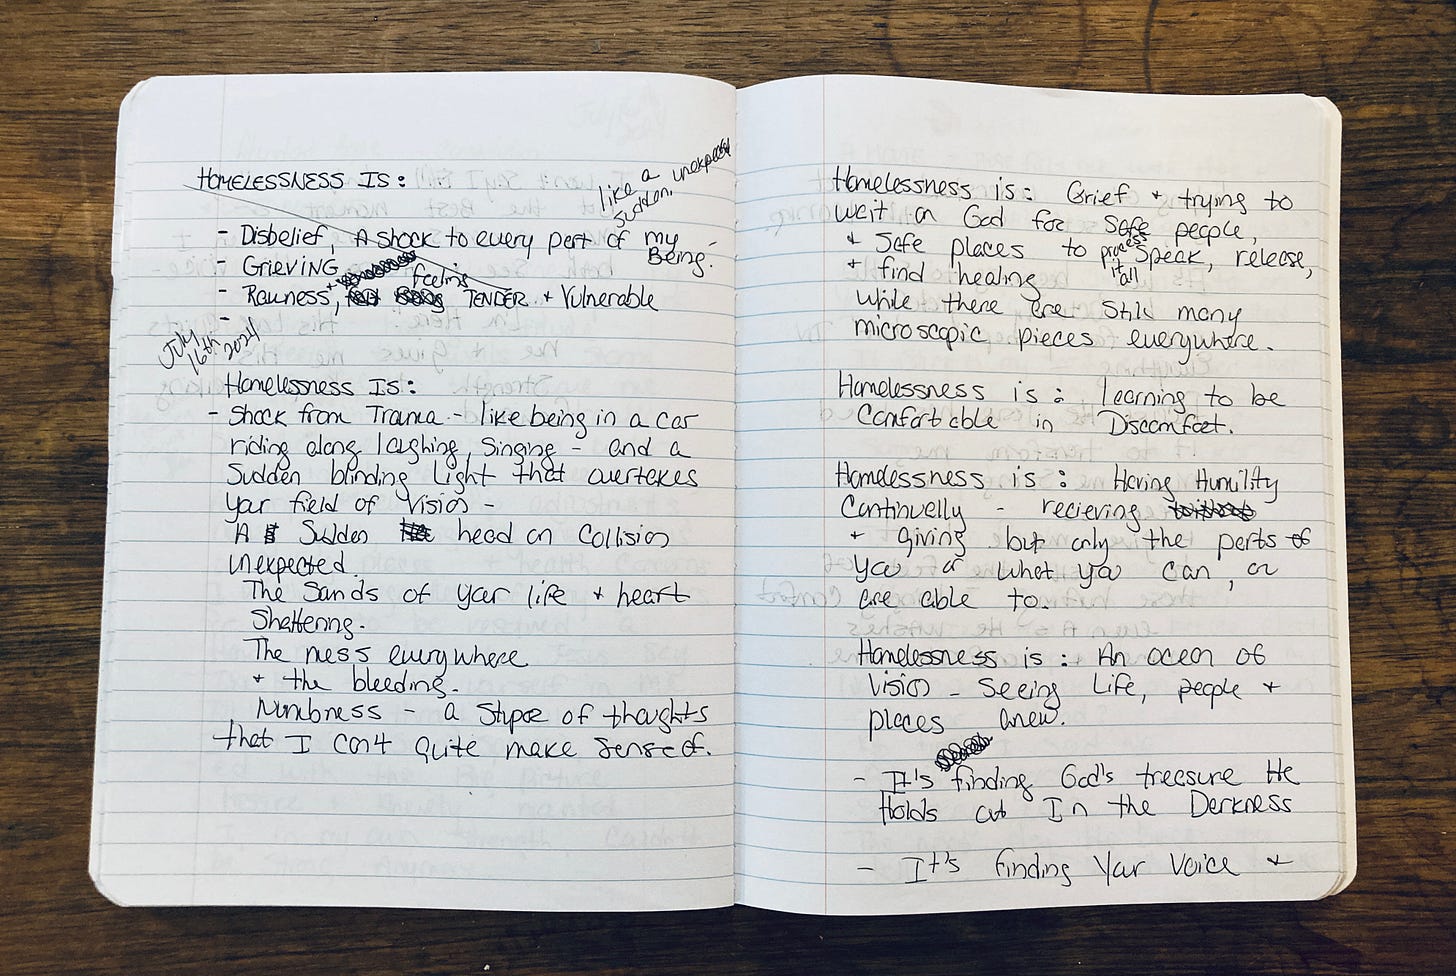 HOMELESSNESS IS:
like a unexpected
sudden,
- Disbelief, A shock to every part of my
Being.
- GRIEVING
feeling
- Rawness, TENDER + Vulnerable
-
July
16th 2024
Homelessness Is:
- Shock from Trama - like being in a car
riding along laughing, singing - and a
Sudden blinding Light that overtakes
your field of Vision -
A Sudden head on Collision
unexpected.
The Sands of your life + heart
Shattering.
The mess everywhere
+ the bleeding.
Numbness - a of thoughts
that I can't quite make sense of.
Homelessness is: Grief + trying to
wait on God for Safe people,
+ Safe places to process Speak, release,
it all
+ find healing
while there are still many
microscopic pieces everywhere.
Homelessness is: learning to be
Comfortable in Discomfort.
Homelessness is: Having Humility
Continually - recieving
+ giving but only the parts of
you or what you can, or
are able to.
Homelessness is: An ocean of
Vision - Seeing Life, people +
places anew.
- It's finding God's treasure He
Holds out In the Darkness
- It's finding Your Voice +